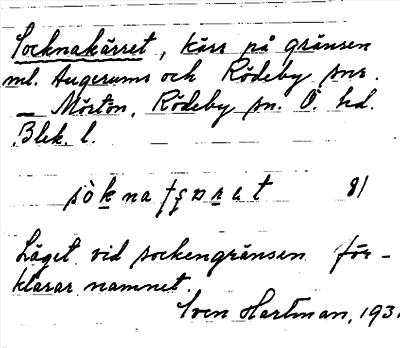 Socknakärret, kärr på gränsen
ml. Augerums och Rödeby snr.
— Mörtön, Rödeby sn. Ö. hd.
Blek. l.
81
Läget vid sockengränsen för-
klarar namnet.
Sven Hartman, 193